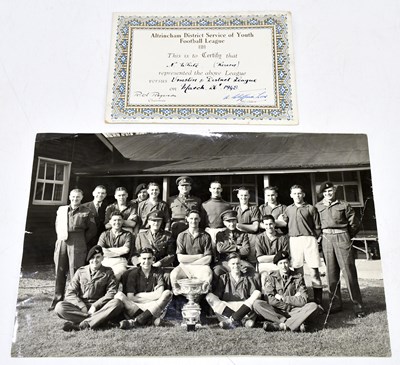 Altrincham District Service of Youth
Football League
This is to Certify that
N. White
represented the above League
versus Urmston & District League
on March